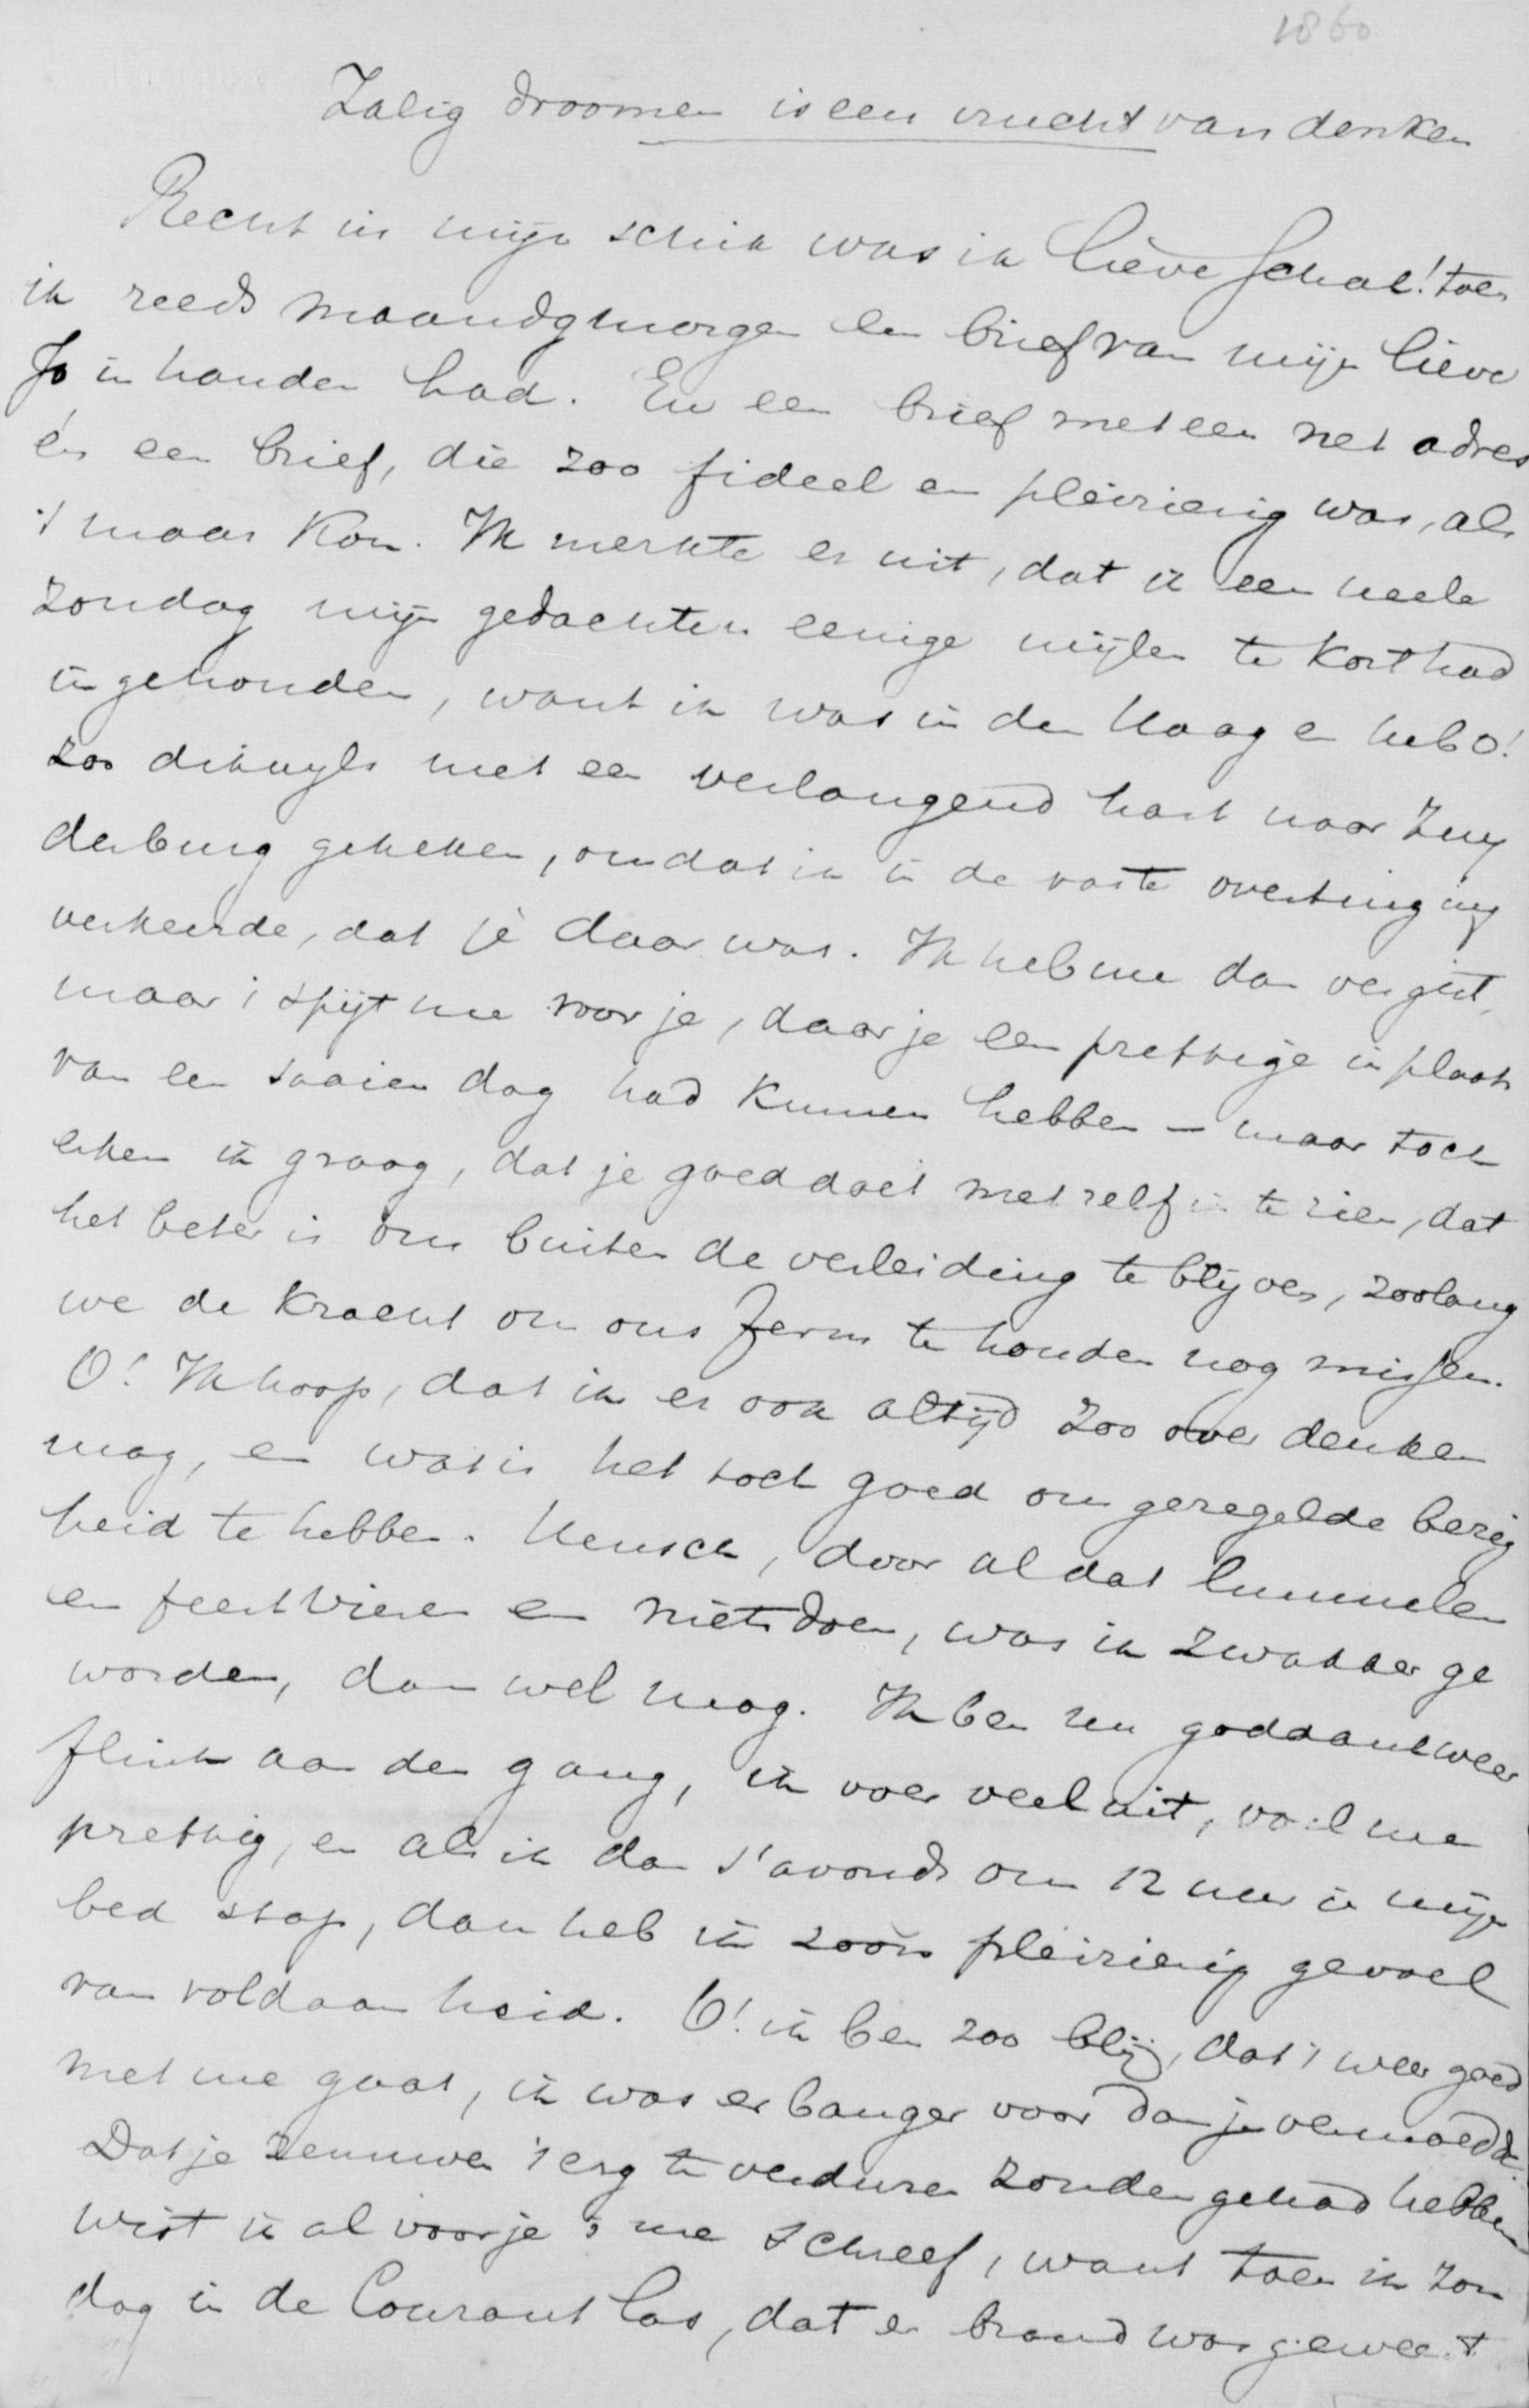 1860
Zalig droomen is een vrucht van denken
Recht in mijn schik was ik lieve schat! toen
ik reeds maandgmorgen een brief van mijn lieve
Jo in handen had. En een brief met een net adres
én een brief, die zoo fideel en pleizierig was, als
't maar kon. Ik merkte er uit, dat ik een heele
Zondag mijn gedachten eenige mijlen te kort had
in gehouden, want ik was in den Haag en heb O!
zoo dikwyls met een verlangend hart naar Zuy
derburg gekeken, omdat ik in de vaste overtuiging
verkeerde, dat je daar was. Ik heb me dan vergist,
maar 't spijt me voor je, daar je een prettige in plaats
van een saaien dag had kunnen hebben — maar toch
erken ik graag, dat je goed doet met zelf in te zien, dat
het beter is om buiten de verleiding te blijven, zoolang
we de kracht om ons ferm te houden nog missen.
O! Ik hoop, dat ik er ook altijd zoo over denken
mag, en wat is het toch goed om geregelde bezig
heid te hebben. Mensch, door al dat lummelen
en feestvieren en nietsdoen, was ik zwakker ge
worden, dan wel mag. Ik ben nu goddank weer
flink aan den gang, ik voer veel uit, voel me
prettig, en als ik dan s'avonds om 12 uur in mijn
bed stap, dan heb ik zoo'n pleizierig gevoel
van voldaanheid. O! ik ben zoo blij, dat 't weer goed
met me gaat, ik was er banger voor dan je vermoedde.
Dat je zenuwen 't erg te verduren zouden gehad hebben
wist ik al voor je 't me schreef, want toen ik Zon
dag in de Courant las, dat er brand was geweest